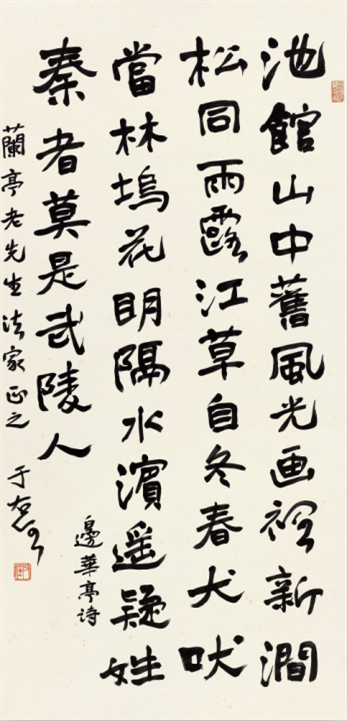 池館山中舊風光画裡新澗
松同雨露江草自冬春犬吠
當林塢花明隔水濱遥疑姓
秦者莫是武陵人
邊華亭詩
蘭亭老先生法家正之 于右任